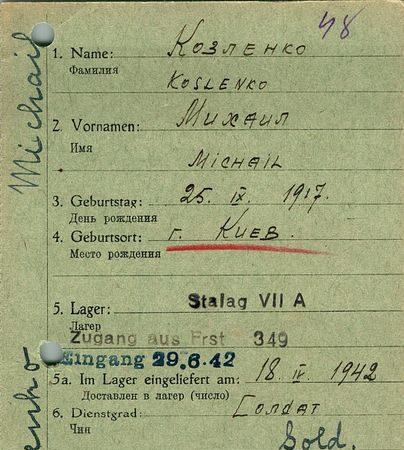 48
1. Name: Козленко
Фамилия
KOSLENKO
2. Vornamen: Михаил
Имя
MICHAIL
3. Geburtstag: 25. IX. 1917.
День рождения
4. Geburtsort: г. Киев.
Место рождения
5. Lager: Stalag VII A
Лагер
Zugang aus Frst 349
Eingang 29.6.42
5a. Im Lager eingeliefert am: 18. IV. 1942
Доставлен в лагер (число)
6. Dienstgrad: Солдат
Чин
Sold.
Michail
enko